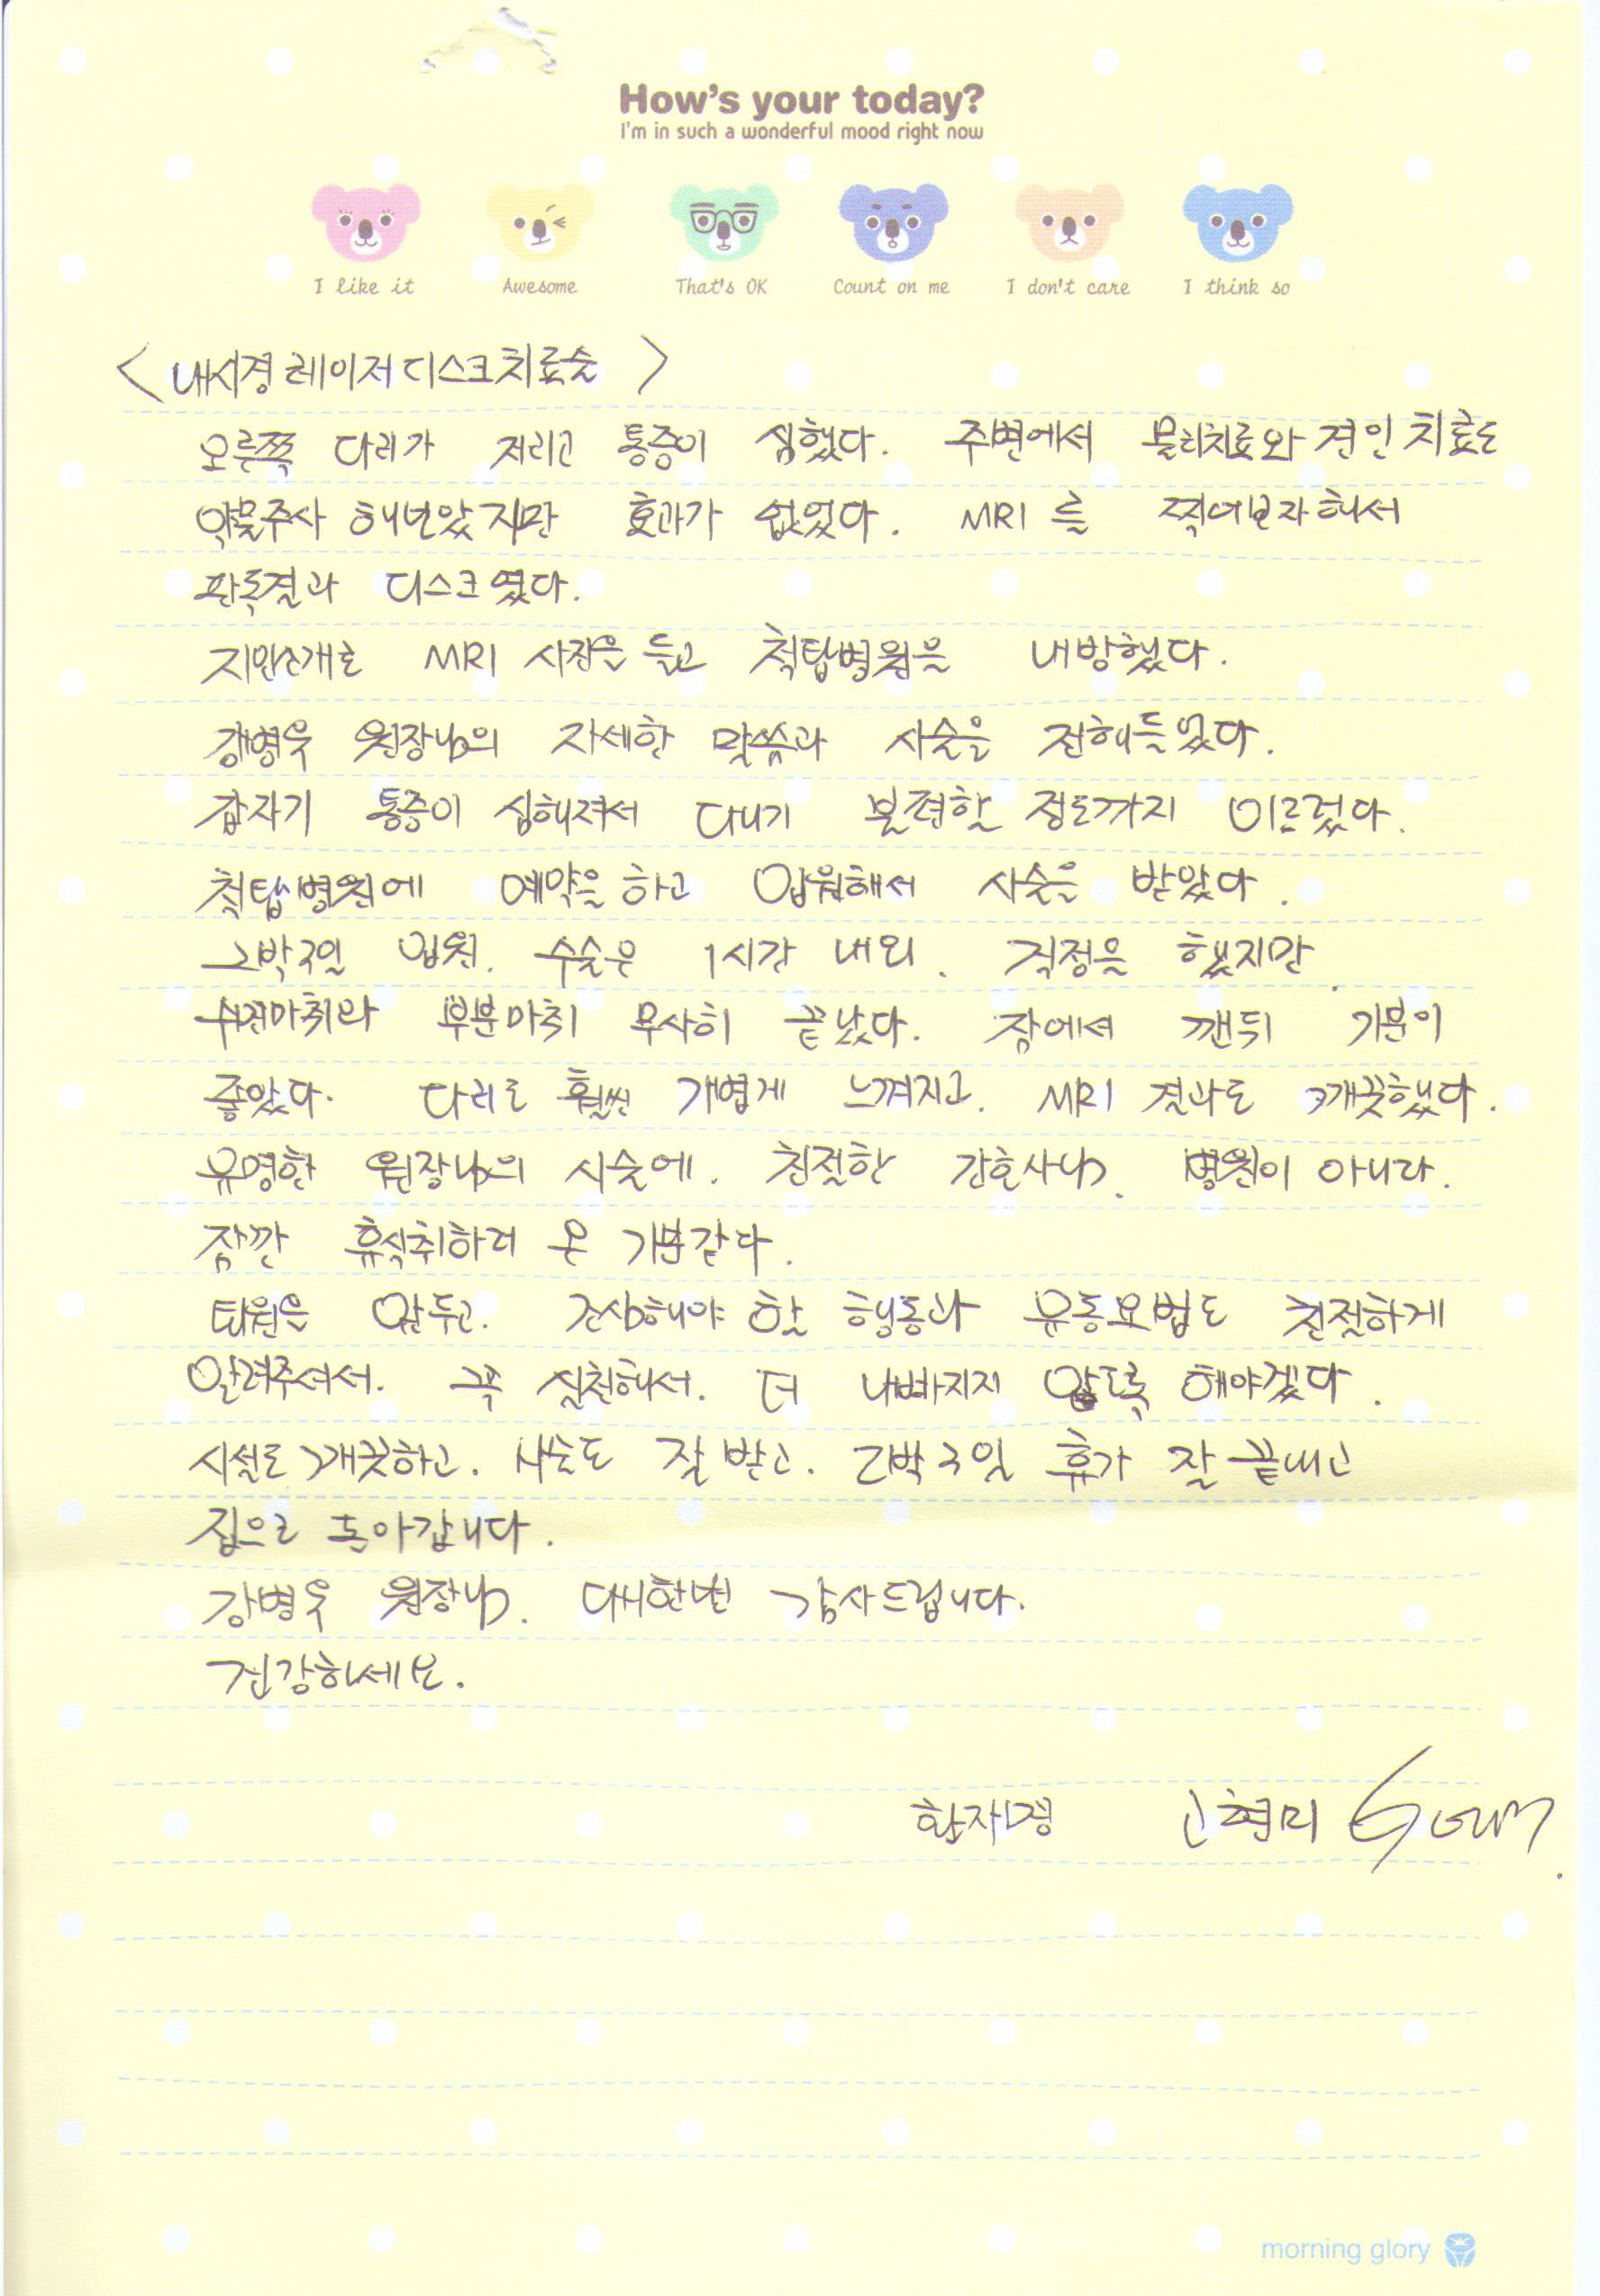 How's your today?
I'm in such a wonderful mood right now
I like it Awesome That's OK Count on me I don't care I think so
<내시경 레이저 디스크 치료술>
오른쪽 다리가 저리고 통증이 심했다. 주변에서 물리치료와 견인치료도
약물주사 해보았지만 효과가 없었다. MRI를 찍어보자해서
판독결과 디스크였다.
지인소개로 MRI 사진을 들고 척탑병원을 내방했다.
강병욱 원장님의 자세한 말씀과 시술을 전해들었다.
갑자기 통증이 심해져서 다니기 불편할 정도까지 이르렀다.
척탑병원에 예약을 하고 입원해서 시술을 받았다.
2박3일 입원. 수술은 1시간 내외. 걱정을 했지만
수면마취와 부분마취 무사히 끝났다. 잠에서 깬뒤 기분이
좋았다. 다리도 훨씬 가볍게 느껴지고. MRI 결과도 깨끗했다.
유명한 원장님의 시술에. 친절한 간호사님. 병원이 아니라.
잠깐 휴식취하러 온 기분같다.
퇴원을 앞두고. 조심해야 할 행동과 운동요법도 친절하게
알려주셔서. 꼭 실천해서. 더 나빠지지 않도록 해야겠다.
시설도 깨끗하고. 시술도 잘 받고. 2박3일 휴가 잘 끝내고
집으로 돌아갑니다.
강병욱 원장님. 다시한번 감사드립니다.
건강하세요.
환자명 고현미
morning glory